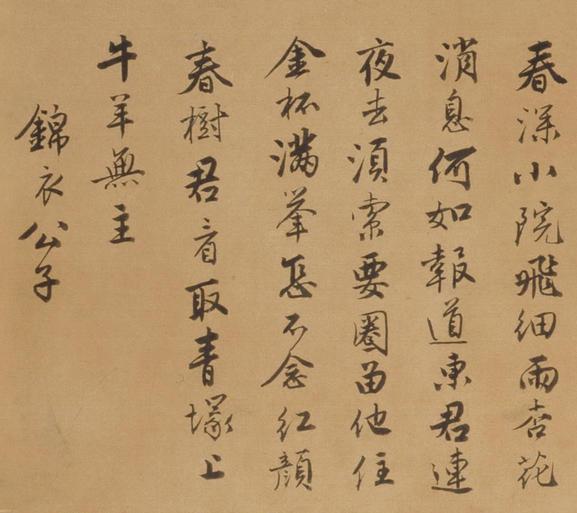 春深小院飛細雨杏花
消息何如報道東君連
夜去須索要圈留他住
金杯滿擧怎不念紅顏
春樹君看取青塚上
牛羊無主
錦衣公子